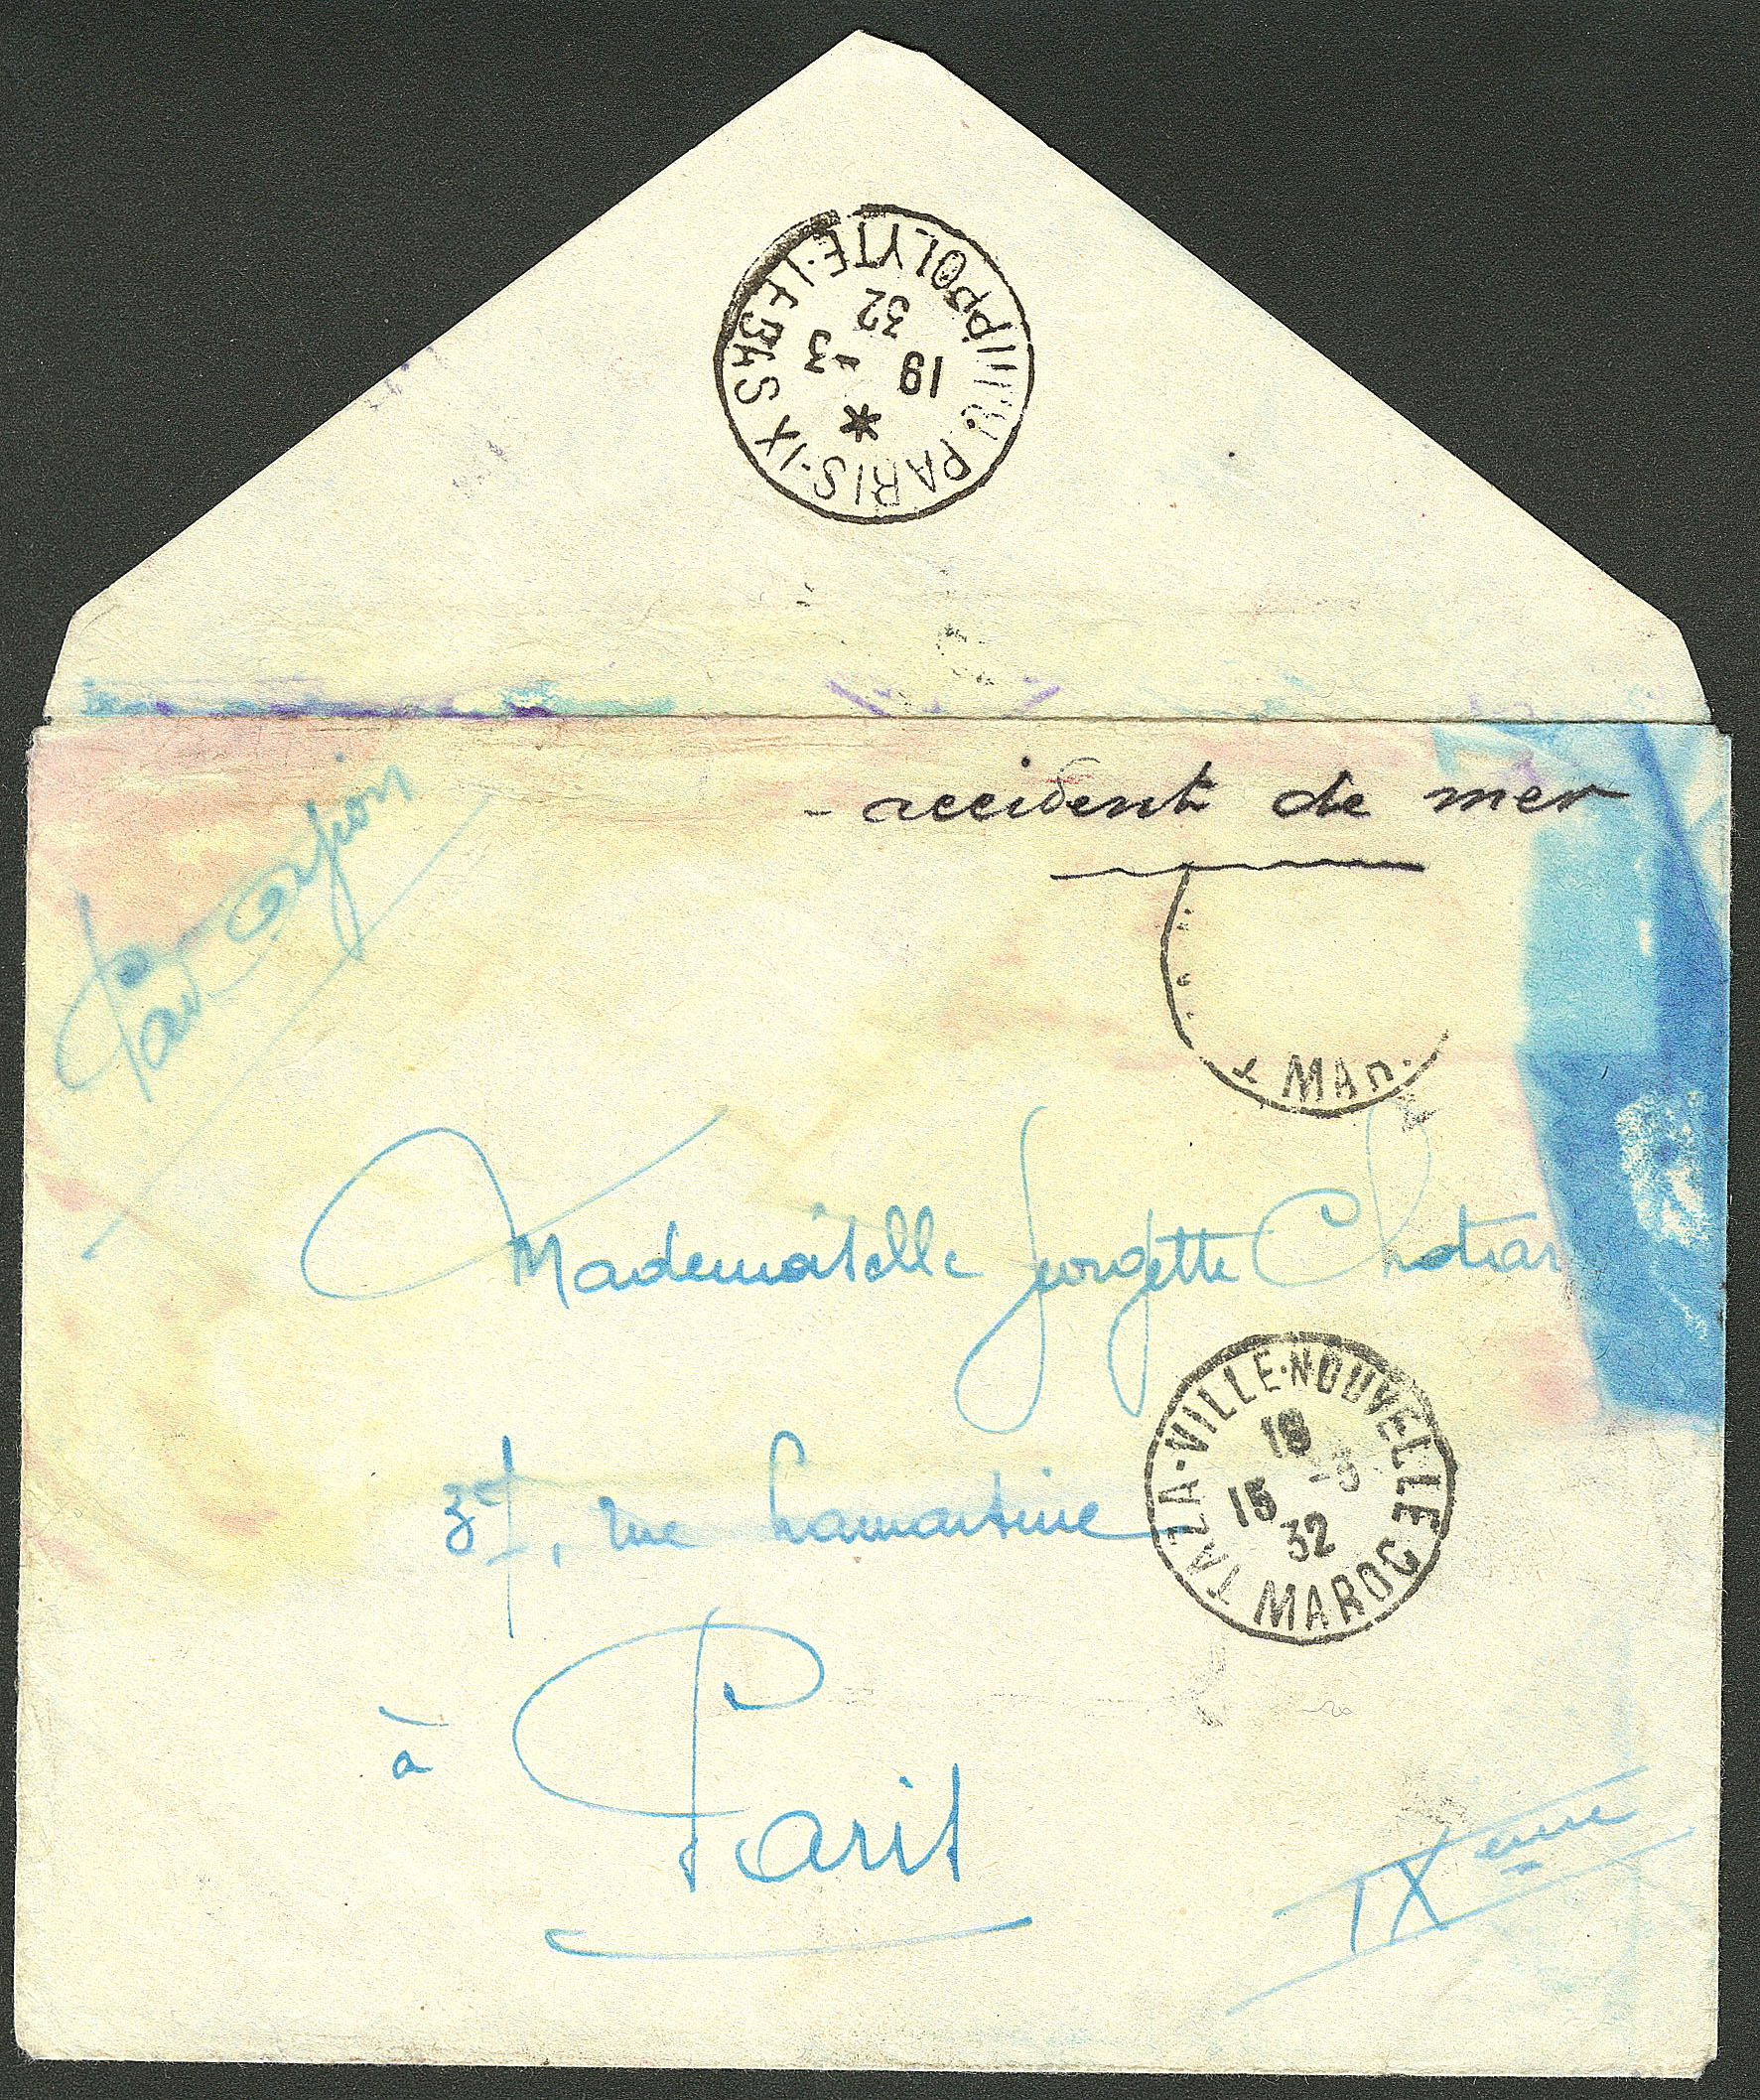 PARIS. IX
19 -3
32
- accident de mer
Par avion
MAR.
Mademoiselle Georgette
TAZA-VILLE-NOUVELLE
18
15 -3
32
MAROC
rue Lamartine
à
Paris
IXeme